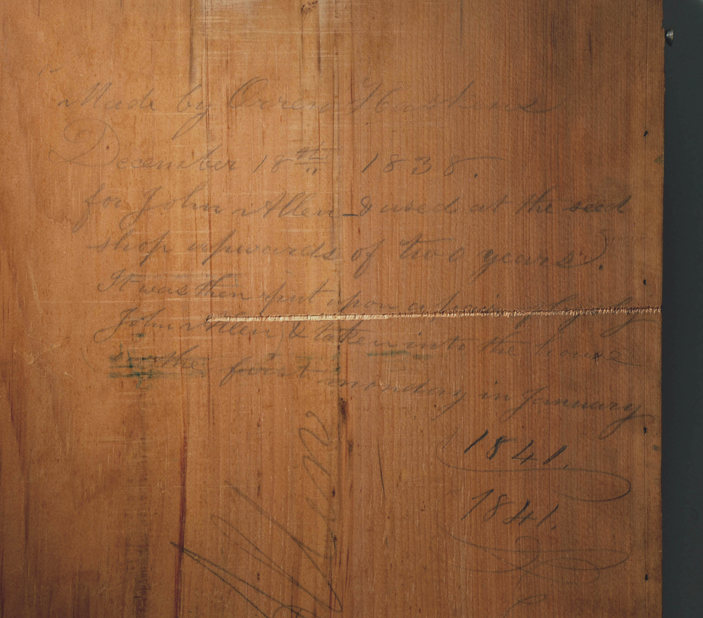 Made by Orren Haskins
December 18th 1838.
for John Allen & used at the seed
shop upwards of two years.
It was then put upon a by
John Allen & taken into the house
on the first monday in January
1841.
1841.